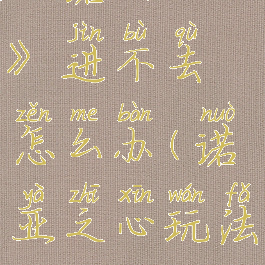 jìn bù qù
》进不去
zěn me bàn nuò
怎么办(诺
yà zhī xīn wán fǎ
亚之心玩法